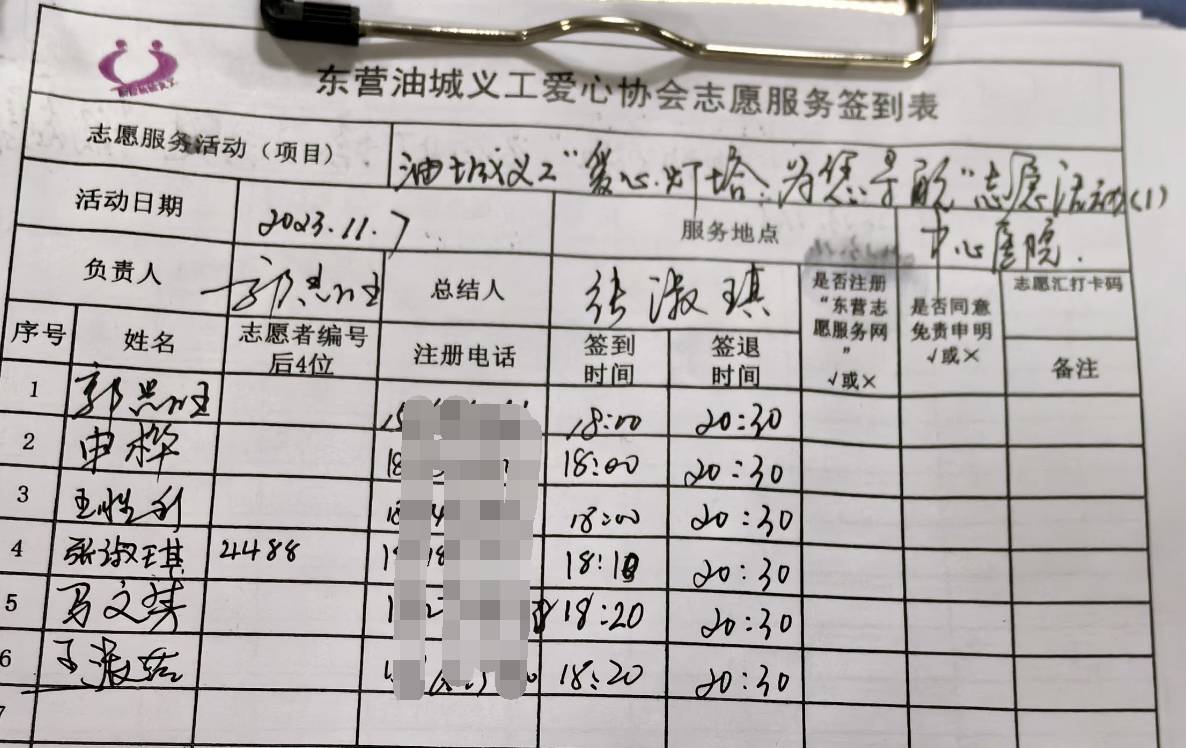 东营油城义工爱心协会志愿服务签到表
志愿服务活动（项目） 油城义工“爱心灯塔：为您导航”志愿活动（1）
活动日期 2023.11.7 服务地点 中心医院.
负责人 总结人 张淑琪 是否注册“东营志愿服务网” √或× 是否同意免责申明 √或× 志愿汇打卡码
序号 姓名 志愿者编号后4位 注册电话 签到时间 签退时间 备注
1 18:00 20:30
2 申桦 18 18:00 20:30
3 18:00 20:30
4 张淑琪 4488 18:10 20:30
5 18:20 20:30
6 18:20 20:30
7